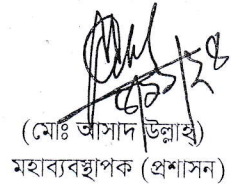 ৪/১১/২৪
(মোঃ আসাদ উল্লাহ্)
মহাব্যবস্থাপক (প্রশাসন)